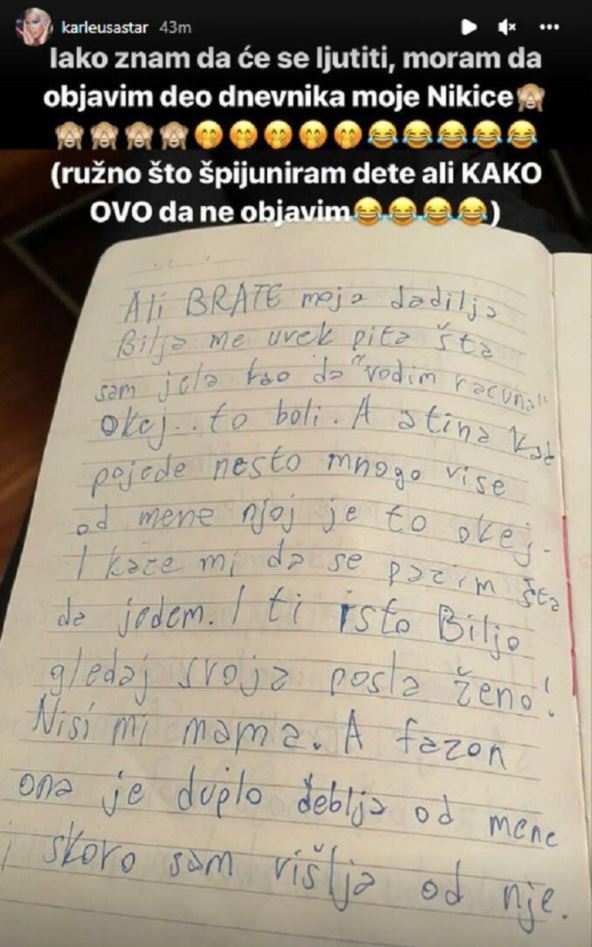 karleusastar 43m
Iako znam da će se ljutiti, moram da
objavim deo dnevnika moje Nikice🙈
🙈🙈🙈🙈🤭🤭🤭🤭🤭😂😂😂😂😂
(ružno što špijuniram dete ali KAKO
OVO da ne objavim😂😂😂😂)
Ali BRATE moja dadilja
Bilja me uvek pita šta
sam jela kao da "vodim računa"
Okej.. to boli. A atina kad
pojede nesto mnogo vise
od mene njoj je to okej.
I kaže mi da se pazim šta
da jedem. I ti isto Biljo
gledaj svoja posla ženo!
Nisi mi mama. A fazon
ona je duplo deblja od mene
i skoro sam višlja od nje.